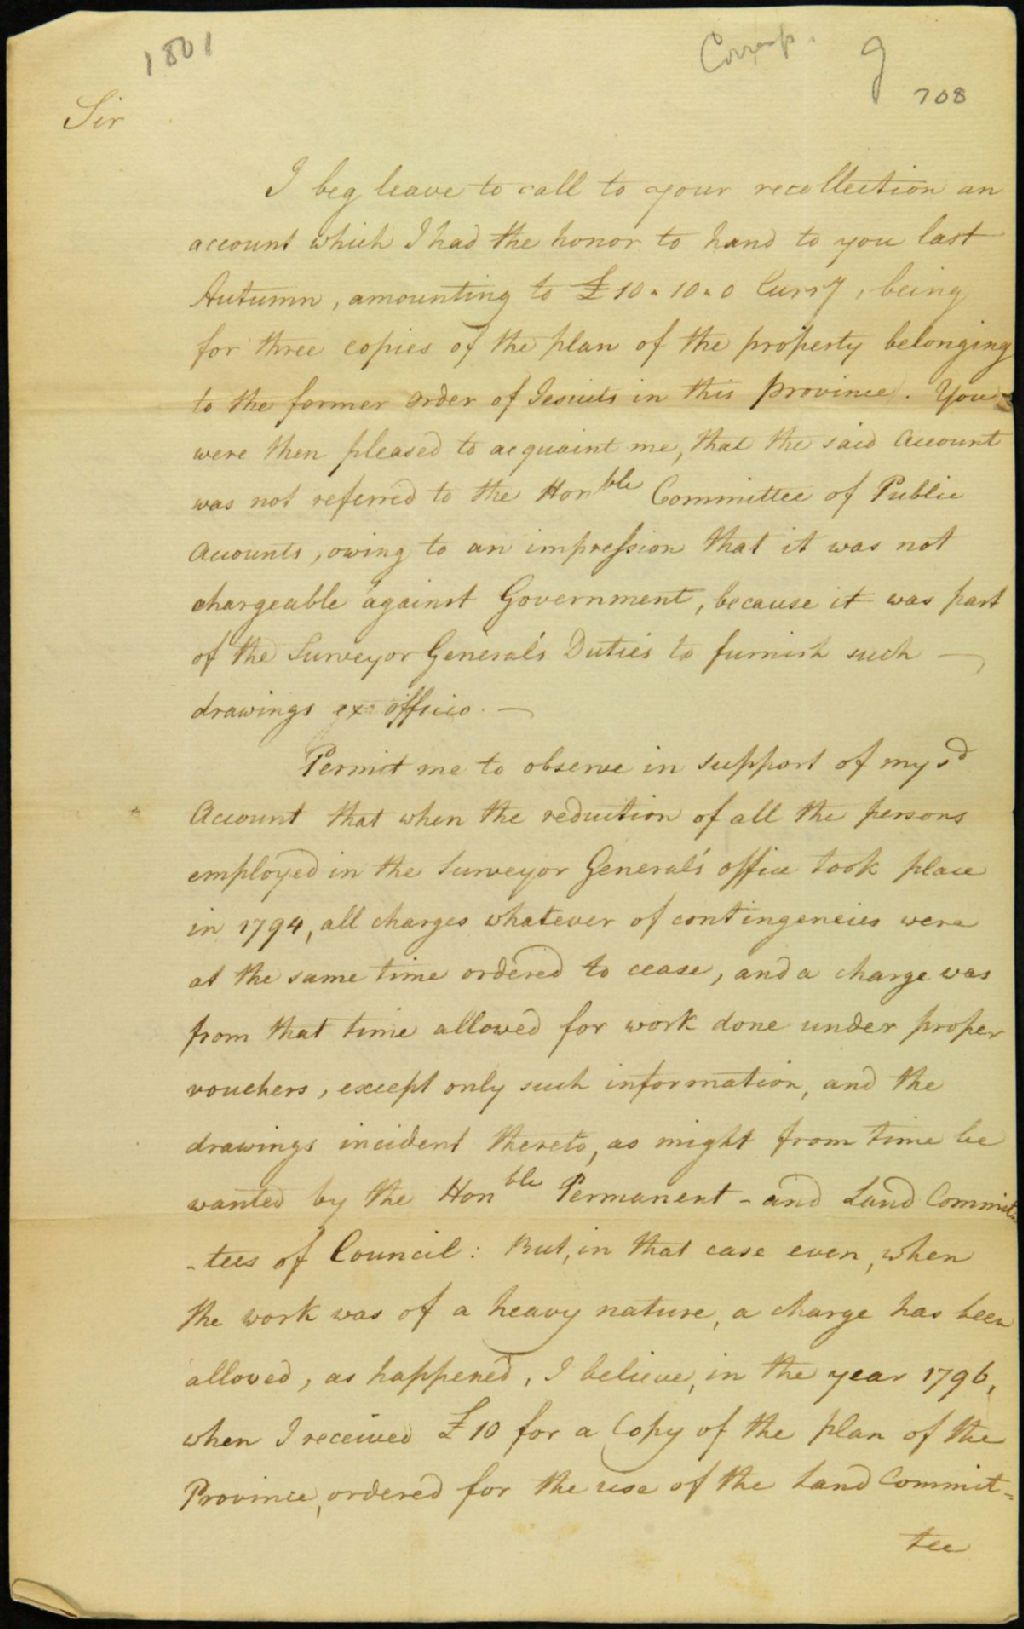 1801
Corresp. g
708
Sir
I beg leave to call to your recollection an
account which I had the honor to hand to you last
Autumn, amounting to £10.10.0 Curry, being
for three copies of the plan of the property belonging
to the former order of Jesuits in this province. You
were then pleased to acquaint me, that the said Account
was not referred to the Honble Committee of Public
Accounts, owing to an impression that it was not
chargeable against Government, because it was part
of the Surveyor General's Duties to furnish such —
drawings ex officio. —
Permit me to observe in support of my sd
Account that when the reduction of all the persons
employed in the Surveyor General's office took place
in 1794, all charges whatever of contingencies were
at the same time ordered to cease, and a charge was
from that time allowed for work done under proper
vouchers, except only such information, and the
drawings incident thereto, as might from time be
wanted by the Honble Permanent - and Land Commit
-tees of Council: But, in that case even, when
the work was of a heavy nature, a charge has been
allowed, as happened, I believe, in the year 1796,
when I received £10 for a Copy of the plan of the
Province, ordered for the use of the Land Commit-
tee